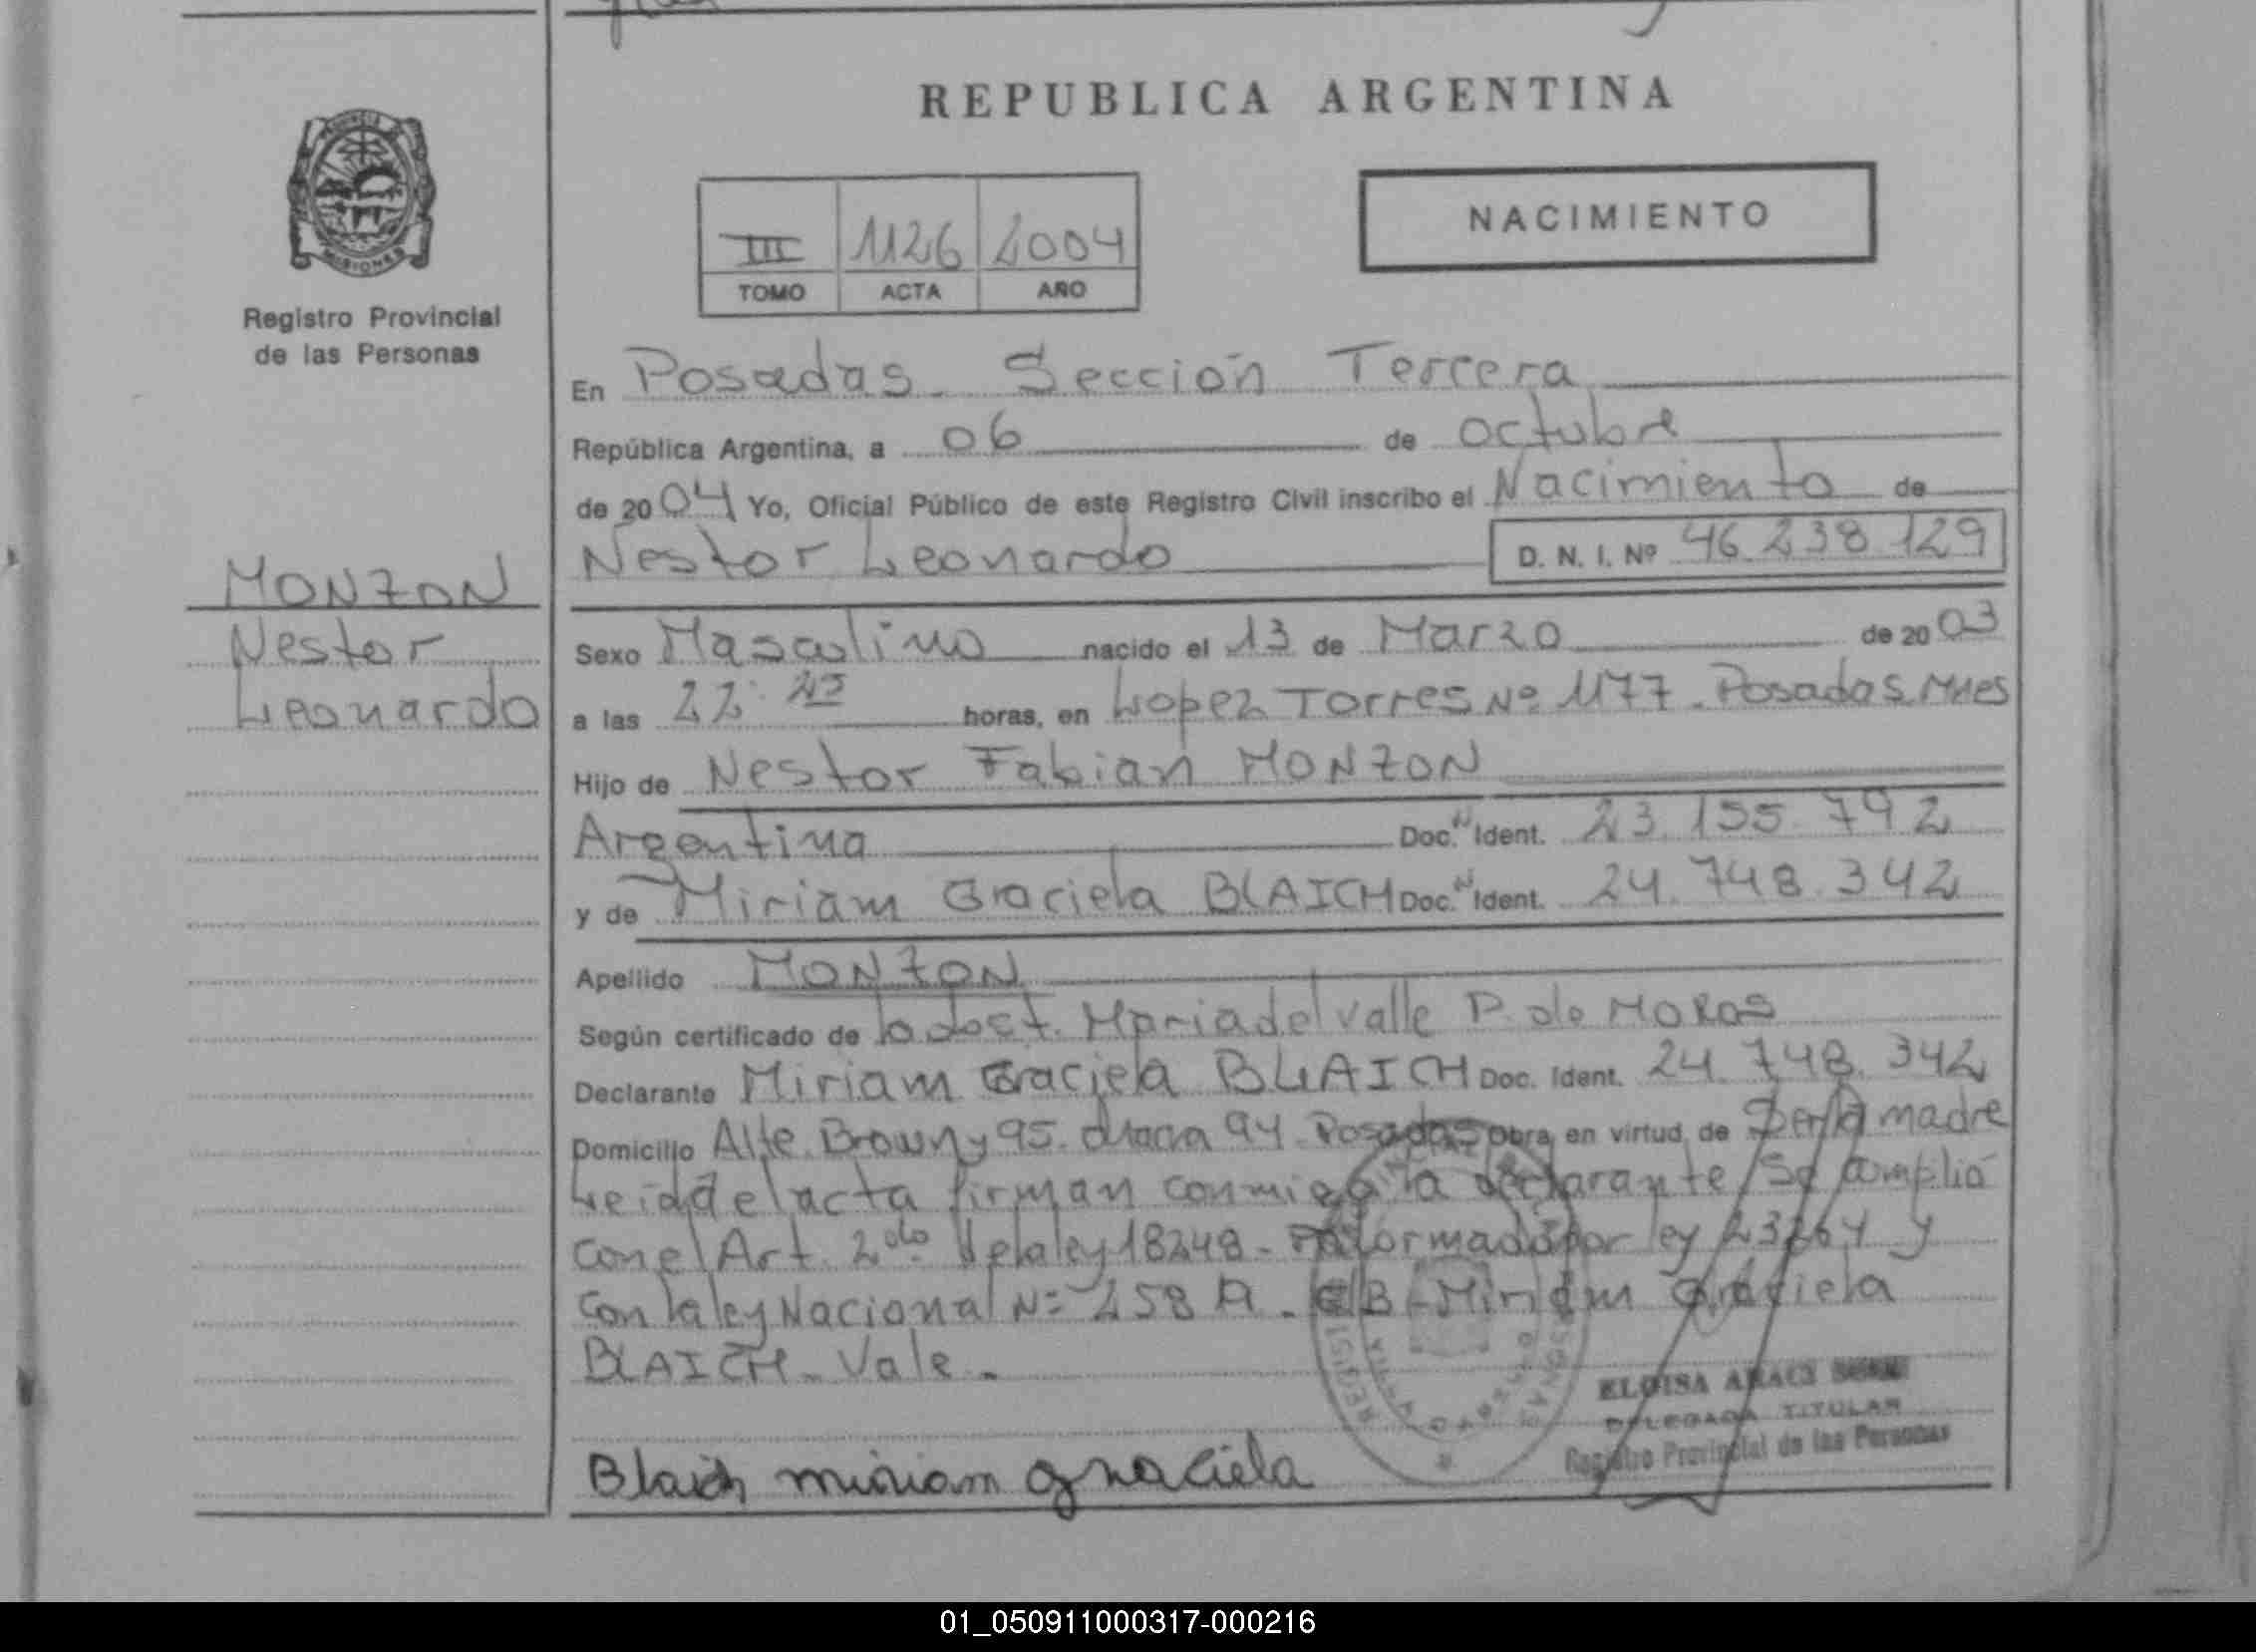 REPUBLICA ARGENTINA
NACIMIENTO
III 1126 2004
TOMO ACTA AÑO
PROVINCIA DE
MISIONES
Registro Provincial
de las Personas
MONZON
Nestor
Leonardo
En Posadas - Sección Tercera
República Argentina, a 06 de octubre
de 2004 Yo, Oficial Público de este Registro Civil inscribo el Nacimiento de
Nestor Leonardo D. N. I. Nº 46.238.129
Sexo Masculino nacido el 13 de Marzo de 2003
a las 22: 25 horas, en Lopez Torres Nº 1177 - Posadas Mnes
Hijo de Nestor Fabian MONZON
Argentina Doc. N Ident. 23.155.792
y de Miriam Graciela BLAICH Doc. N Ident. 24.748.342
Apellido MONZON
Según certificado de la doct. Maria del Valle P. de MORAS
Declarante Miriam Graciela BLAICH Doc. Ident. 24.748.342
Domicilio Alte. Brown y 95. chacra 94 - Posadas obra en virtud de Ser la madre
Leida el acta firman conmigo la declarante / Se amplió
con el Art. 2do de la ley 18248 - por ley 23264 y
con la ley Nacional Nº 258 - Miriam Graciela
BLAICH - Vale -
Blaich miriam graciela
ELOISA
DELEGADA TITULAR
Registro Provincial de las Personas
01_050911000317-000216